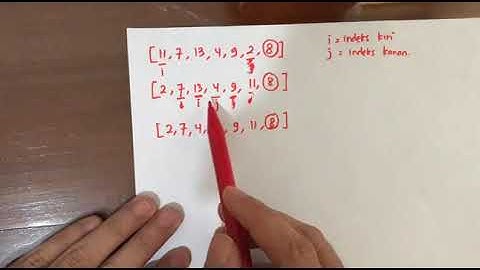 [ 11, 7, 13, 4, 9, 2, 8 ]
i j
[ 2, 7, 13, 4, 9, 11, 8 ]
i i j j j
[ 2, 7, 4, 9, 11, 8 ]
i = indeks kiri
j = indeks kanan.